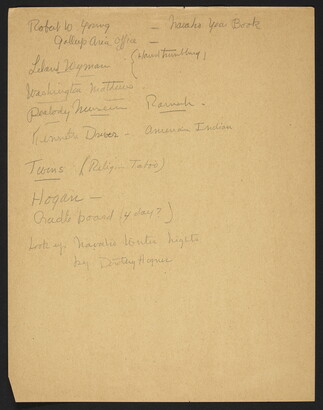 Robert W Young — Navaho Year Book
Gallup Area Office —
Leland Wyman (Hand Trembling)
Washington Matthews
Peabody Museum Ramah.
Kenneth - American Indian
Twins (Religion Taboo)
Hogan —
Cradle board (4 days?)
Look up Navaho Winter Nights
by Dorothy